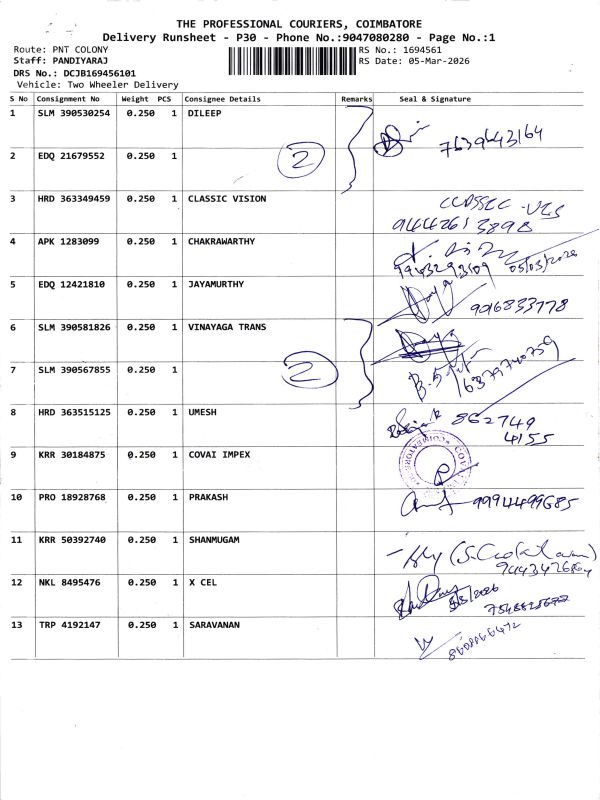 THE PROFESSIONAL COURIERS, COIMBATORE
Delivery Runsheet - P30 - Phone No.:9047080280 - Page No.:1
Route: PNT COLONY
RS No.: 1694561
Staff: PANDIYARAJ
RS Date: 05-Mar-2026
DRS No.: DCJB169456101
Vehicle: Two Wheeler Delivery
S No Consignment No Weight PCS Consignee Details Remarks Seal & Signature
1 SLM 390530254 0.250 1 DILEEP
7639643164
2 EDQ 21679552 0.250 1 2
3 HRD 363349459 0.250 1 CLASSIC VISION
9442613898
4 APK 1283099 0.250 1 CHAKRAWARTHY
05/03/2026
5 EDQ 12421810 0.250 1 JAYAMURTHY
9016833778
6 SLM 390581826 0.250 1 VINAYAGA TRANS
7 SLM 390567855 0.250 1 2
6379740759
8 HRD 363515125 0.250 1 UMESH
862749
4155
9 KRR 30184875 0.250 1 COVAI IMPEX
10 PRO 18928768 0.250 1 PRAKASH
9994499685
11 KRR 50392740 0.250 1 SHANMUGAM
12 NKL 8495476 0.250 1 X CEL
5/3/2026
13 TRP 4192147 0.250 1 SARAVANAN